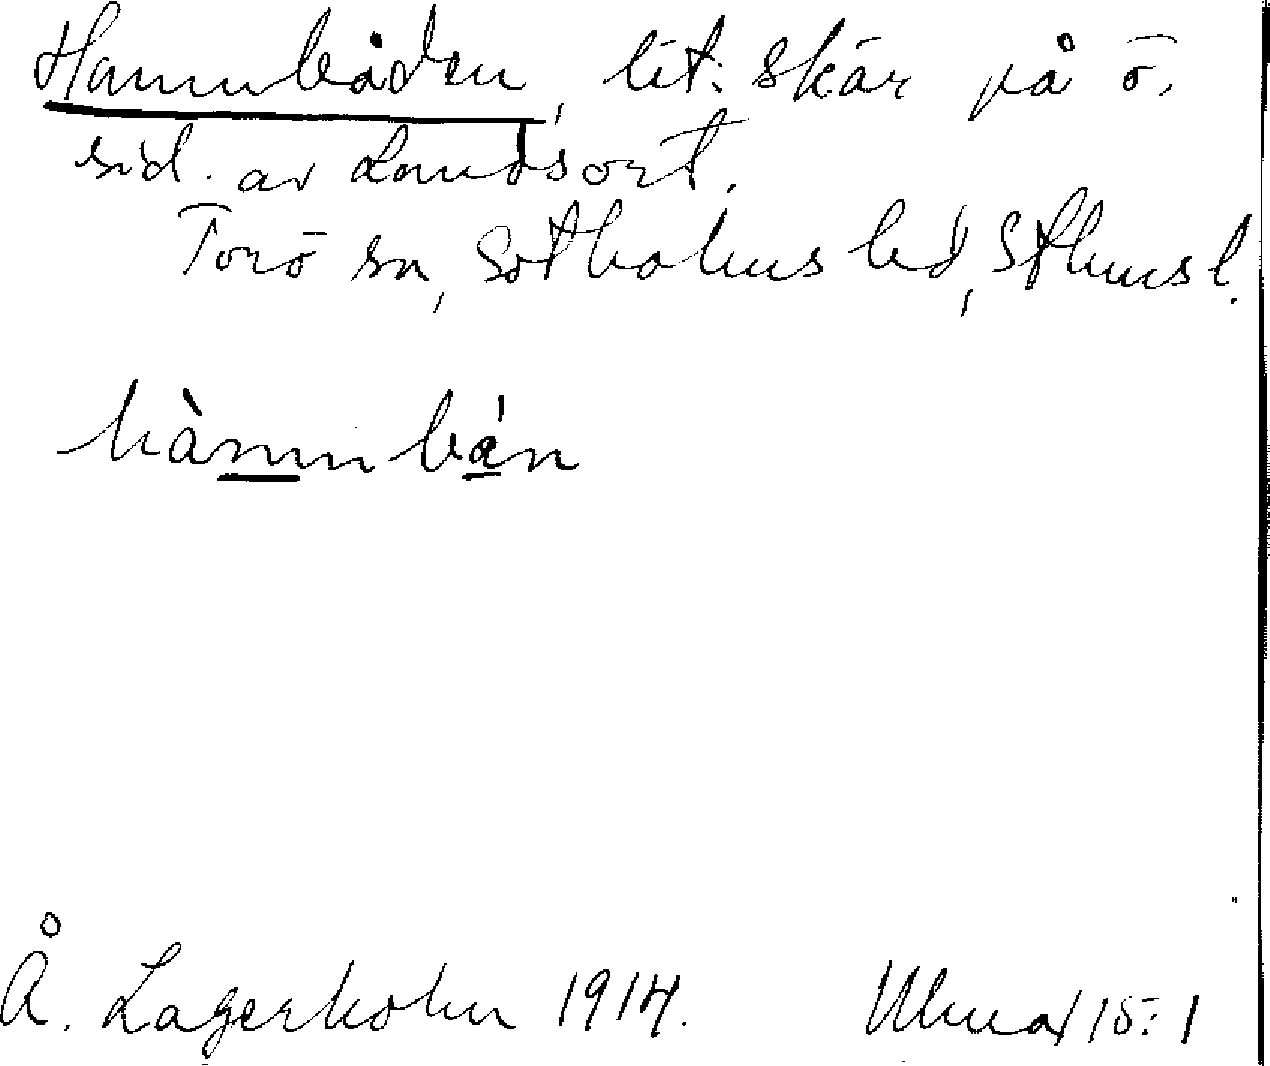 Hamnbåden, lit. skär på ö.
sid. av Landsort.
Torö sn, Sotholms hd, Sthms l.
hàmnbá̱n
Å. Lagerholm 1914.